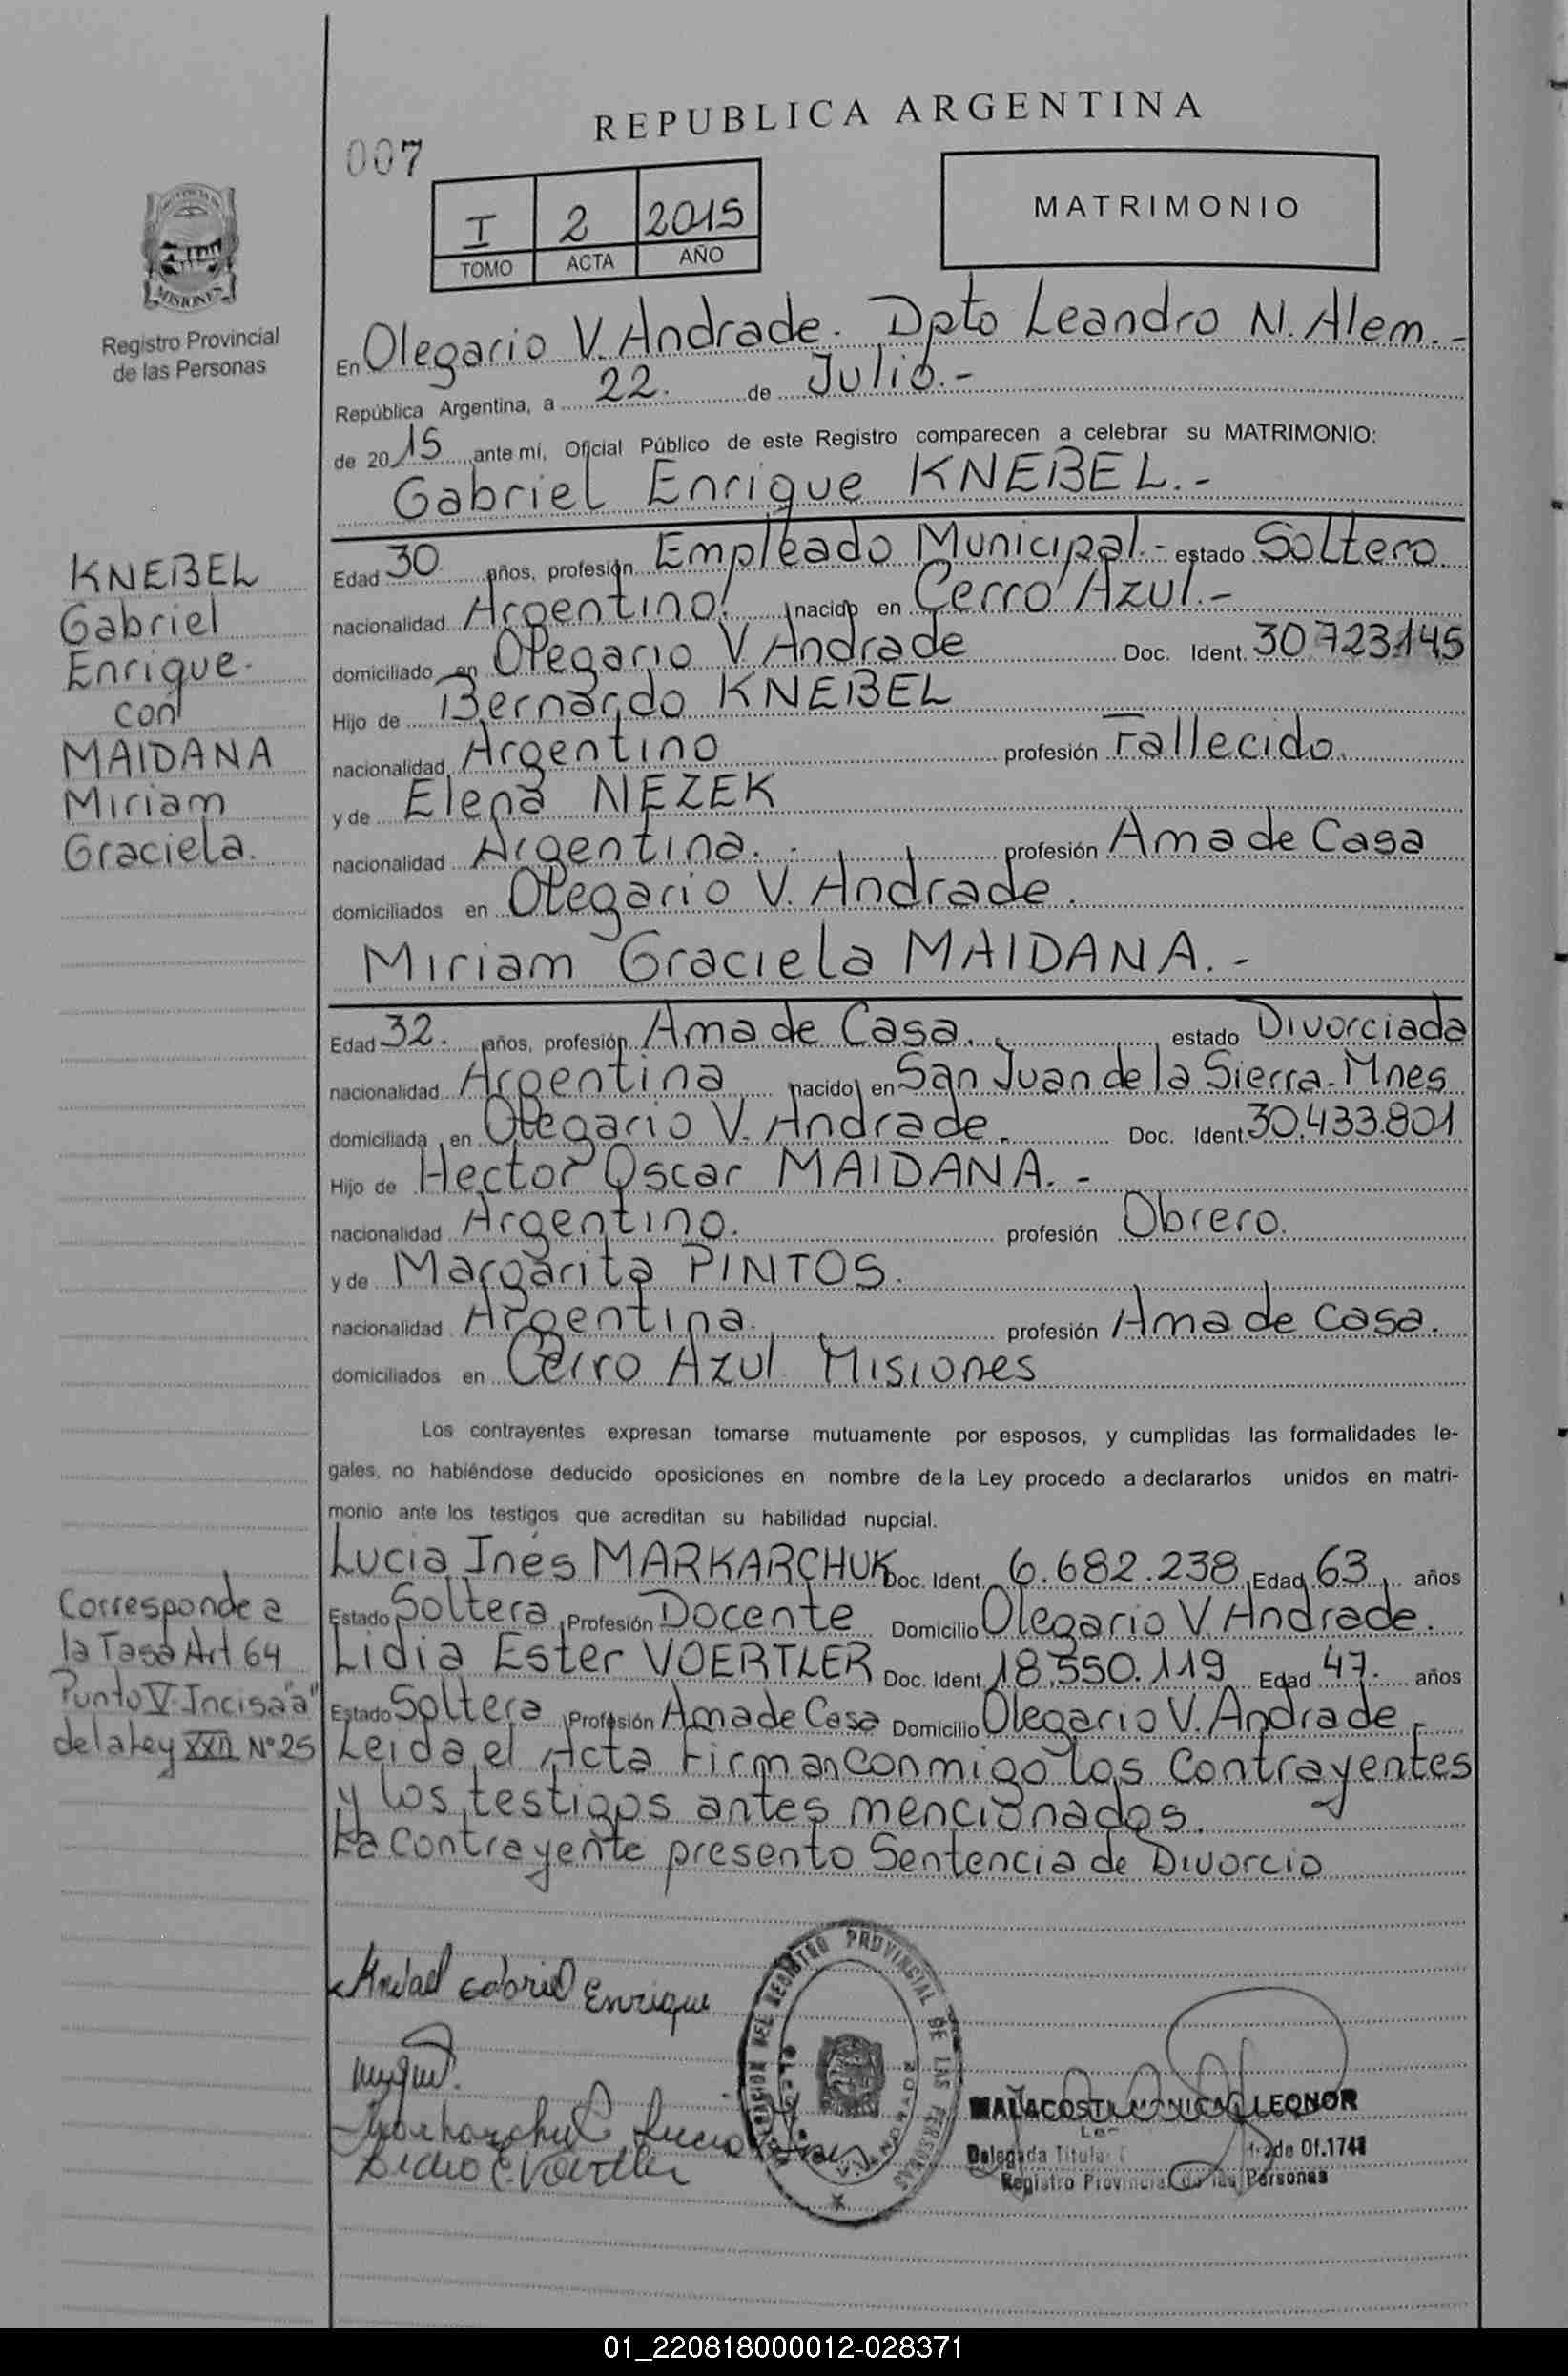 REPUBLICA ARGENTINA
007
I 2 2015
TOMO ACTA AÑO
MATRIMONIO
MISIONES
Registro Provincial
de las Personas
En Olegario V. Andrade. Dpto Leandro N. Alem.-
República Argentina, a 22. de Julio.-
de 2015 ante mí, Oficial Público de este Registro comparecen a celebrar su MATRIMONIO:
Gabriel Enrique KNEBEL.-
KNEBEL
Gabriel
Enrique.
con
MAIDANA
Miriam
Graciela.
Edad 30 años, profesión Empleado Municipal.- estado Soltero.
nacionalidad Argentino. nacido en Cerro Azul.-
domiciliado en Olegario V. Andrade Doc. Ident. 30723145
Hijo de Bernardo KNEBEL
nacionalidad Argentino profesión Fallecido.
y de Elena NEZEK
nacionalidad Argentina. profesión Ama de Casa
domiciliados en Olegario V. Andrade.
Miriam Graciela MAIDANA.-
Edad 32. años, profesión Ama de Casa. estado Divorciada
nacionalidad Argentina nacido en San Juan de la Sierra. Mnes
domiciliada en Olegario V. Andrade. Doc. Ident. 30.433.801
Hijo de Hector Oscar MAIDANA.-
nacionalidad Argentino. profesión Obrero.
y de Margarita PINTOS.
nacionalidad Argentina. profesión Ama de Casa.
domiciliados en Cerro Azul Misiones
Los contrayentes expresan tomarse mutuamente por esposos, y cumplidas las formalidades le-
gales, no habiéndose deducido oposiciones en nombre de la Ley procedo a declararlos unidos en matri-
monio ante los testigos que acreditan su habilidad nupcial.
Lucia Inés MARKARCHUK Doc. Ident. 6.682.238 Edad 63 años
Estado Soltera Profesión Docente Domicilio Olegario V. Andrade.
Lidia Ester VOERTLER Doc. Ident. 18.550.119 Edad 47. años
Estado Soltera Profesión Ama de Casa Domicilio Olegario V. Andrade.-
Leida el Acta Firman conmigo los Contrayentes
y los testigos antes mencionados.
La Contrayente presento Sentencia de Divorcio
Corresponde a
la Tasa Art 64
Punto V. Incisa "a"
de la Ley XXII N° 25
Knebel Gabriel Enrique
Markarchuk Lucia Ines
Lidia E. Voertler
REGISTRO PROVINCIAL DE LAS PERSONAS
MALACOSTI MONICA LEONOR
Delegada Titular Of. 1748
Registro Provincial de las Personas
01_220818000012-028371